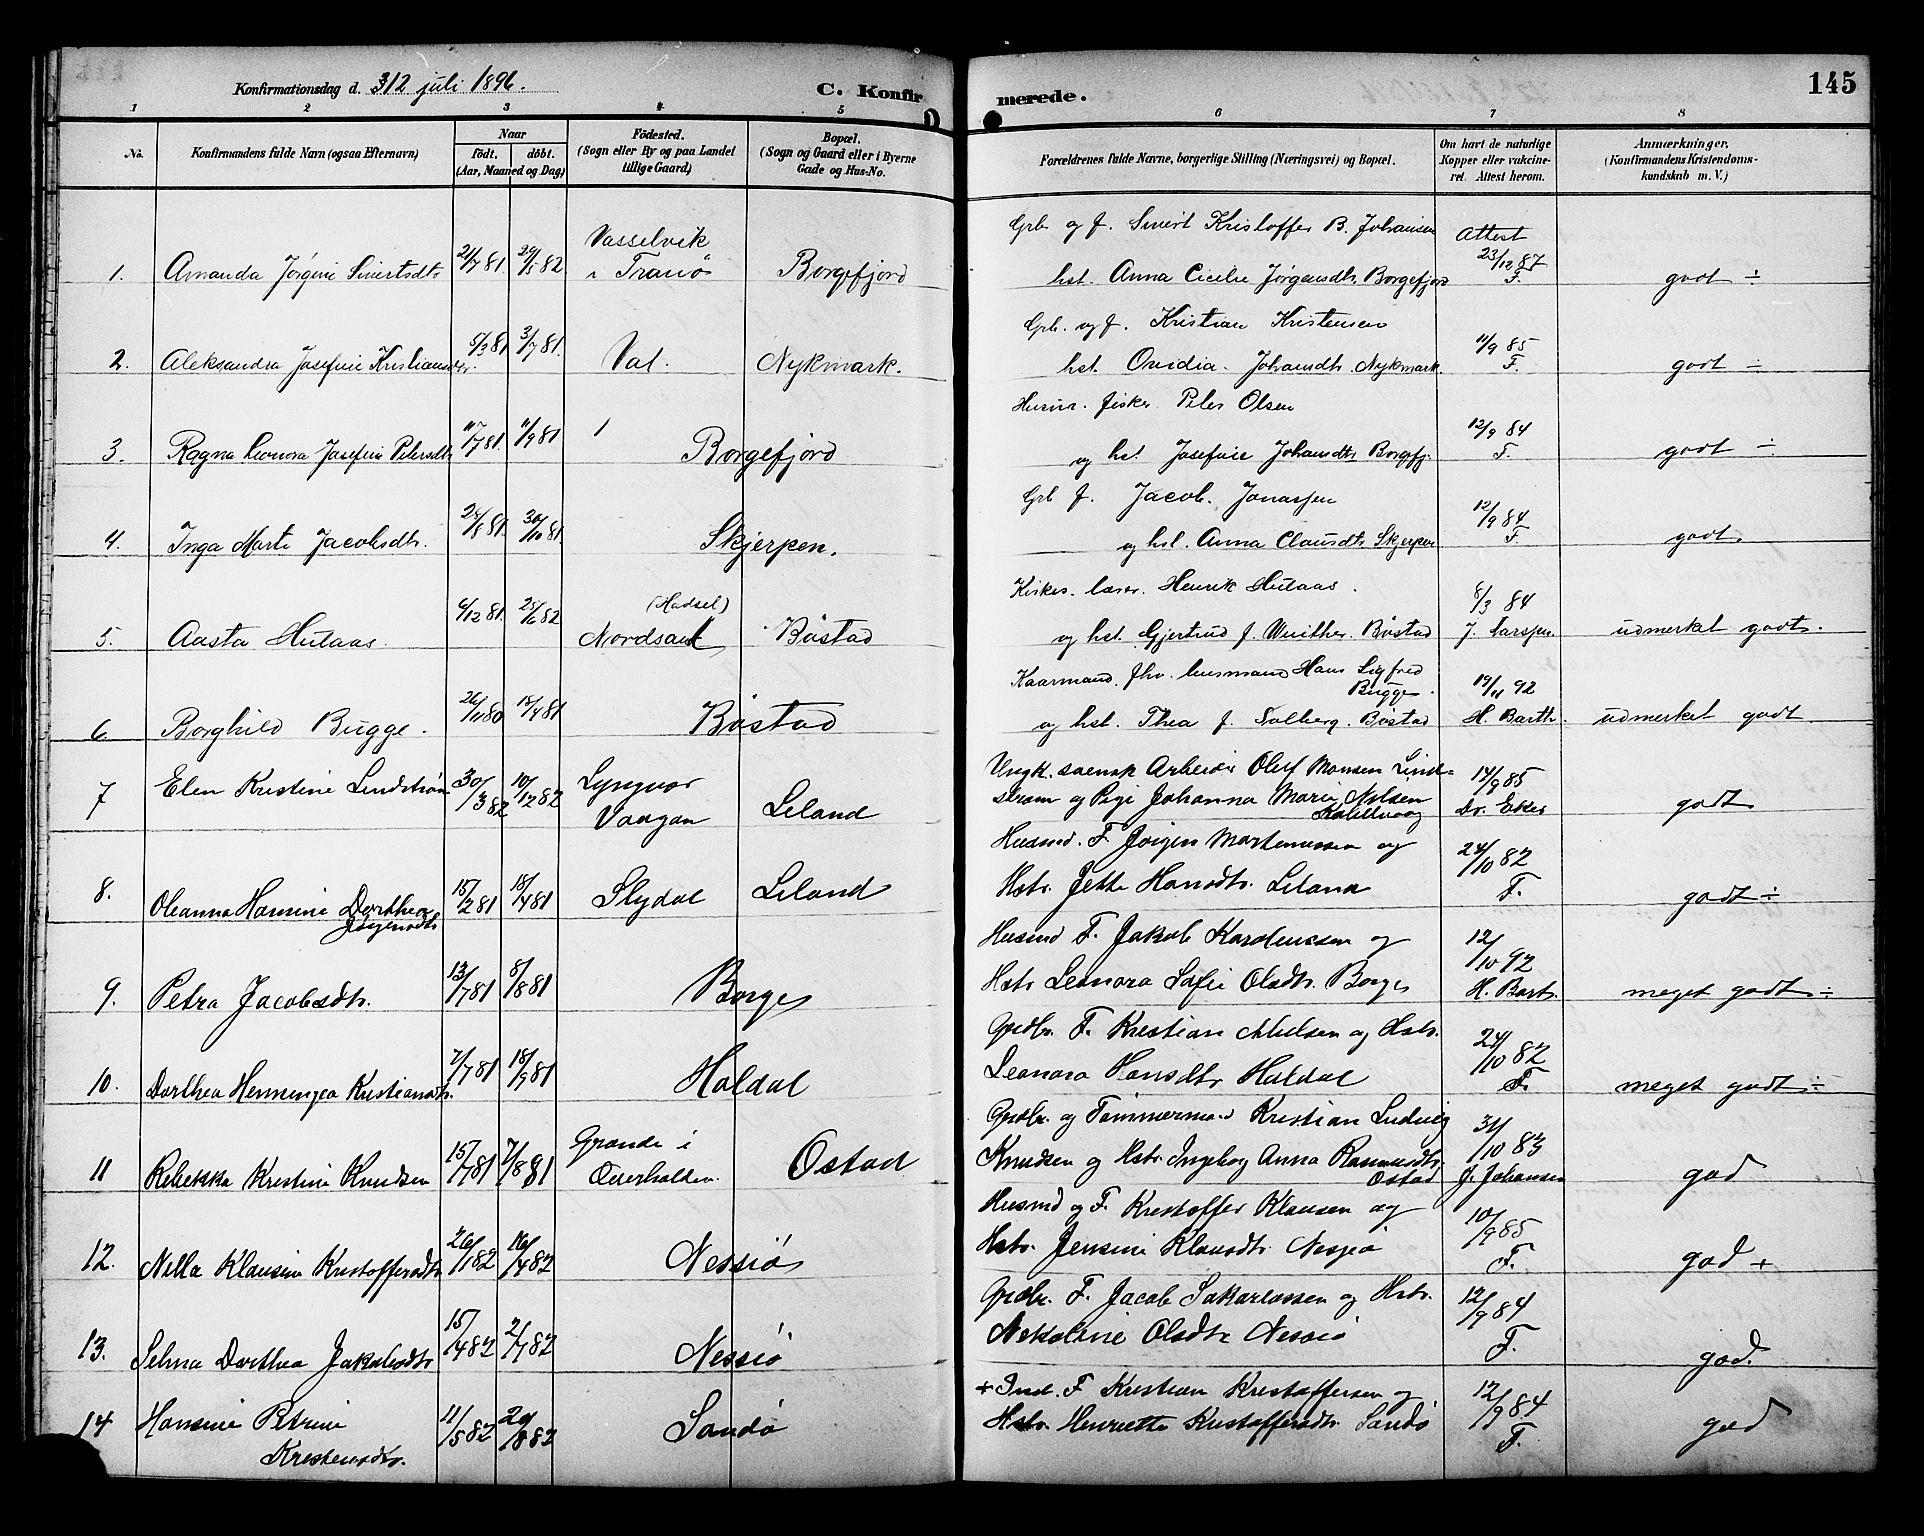 Konfirmationsdag d. 12 juli 1896.
C. Konfir
merede.
145
1 2 3 4 5 6 7 8
No.
Konfirmandens fulde Navn (ogsaa Efternavn)
Naar
födt. döbt.
(Aar, Maaned og Dag)
Födested.
(Sogn eller By og paa Landet
tillige Gaard)
Bopæl.
(Sogn og Gaard eller i Byerne
Gade og Hus-No.
Forældrenes fulde Navne, borgerlige Stilling (Næringsvei) og Bopæl.
Om havt de naturlige
Kopper eller vakcine-
ret. Attest herom.
Anmærkninger.
(Konfirmandens Kristendoms-
kundskab m. V.)
1. Amanda Jørgine Sivertsdtr 21/7 81 29/5 82 Vasselvik
i Tranö Borgefjord
Grb og f. Sivert Kristoffer B. Johansen
hst. Anna Cicilie Jørgensdtr. Borgefjord
Attest
23/12 87
F.
godt ÷
2. Aleksandra Josefine Kristiansdtr. 5/3 81 3/7 81. Val. Nykmark.
Grb. og f. Kristian Kristensen
hst. Ovidia Johansdtr. Nykmark.
11/9 85
F.
godt ÷
3. Ragna Leonora Josefine Petersdtr 17/7 81. 11/9 81 Borgefjord
Husm. fisker. Peter Olsen
og hst. Josefine Johansdtr. Borgefj.
12/9 84
F.
godt ÷
4. Inga Marta Jacobsdtr. 24/8 81. 30/10 81. Skjerpen.
Grb f. Jacob. Jonassen
og hst. Anna Clausdtr. Skjerpen
12/9 84
F.
godt.
5. Aasta Hutaas. 6/12 81. 25/6 82 (Hadsel)
Nordsand Böstad
Kirkes. lærer. Henrik Hutaas.
og hst. Gjertrud f. Winther. Böstad
8/3 84
J. Larssen.
udmerket godt.
6. Borghild Bugge. 26/11 80 18/4 81 Böstad
Kaarmand. fhv. husmand Hans Sigfred
Bugge.
og hst. Thea f. Solberg. Böstad
19/11 92
H. Barth.
udmerket godt
7 Elen Kristine Lindström 30/3 82 10/12 82 Lyngvær
Vaagan Leland
Ungk. svensk Arbeider Oluf Monsen Lind=
ström og Pige Johanna Marie Nilsen
14/9 85
Dr. Eker
godt
8. Oleanna Hansine Dorthea
Jörgensdtr 15/2 81 18/4 81 Slydal Leland
Husmd. F. Jörgen Mortenussen og
Hstr. Jette Hansdtr. Leland
24/10 82
F.
godt ÷
9. Petra Jacobsdtr. 13/7 81 8/8 81 Borge
Husmd F. Jakob Karoliussen og
Hstr Leonora Sofie Olsdtr. Borge
12/10 92
H. Barth.
meget godt ÷
10. Dorthea Henningea Kristiansdtr. 7/7 81 18/9 81 Haldal
Grdbr. F. Kristian Nielsen og Hstr.
Leonora Hansdtr Haldal
24/10 82
F.
meget godt ÷
11 Rebekka Kristine Knudsen 15/7 81 7/8 81 Grande i
Overhalden. Ostad
Grdbr. og Tömmermand Kristian Ludvig
Knudsen og Hstr Ingeborg Anna Rasmusdtr.
Ostad
31/10 83
J. Johansen
god
12. Nilla Klausine Kristoffersdtr 26/1 82 16/4 82 Nessiö
Husmd og F. Kristoffer Klausen og
Hstr. Jensine Klausdtr. Nessiö
10/9 85
F.
god +
13. Selma Dorthea Jakobsdtr 15/4 82 2/7 82 Nessiö
Grdbr. F. Jacob Sakariassen og Hstr.
Nikoline Olsdtr Nessiö
12/9 84
F.
god.
14 Hansine Petrine
Kristensdtr. 11/5 82 20/8 82 Sandö
+ Ind. F Kristian Kristoffersen og
Hstr. Henriette Kristoffersdtr. Sandö
12/9 84
F.
god